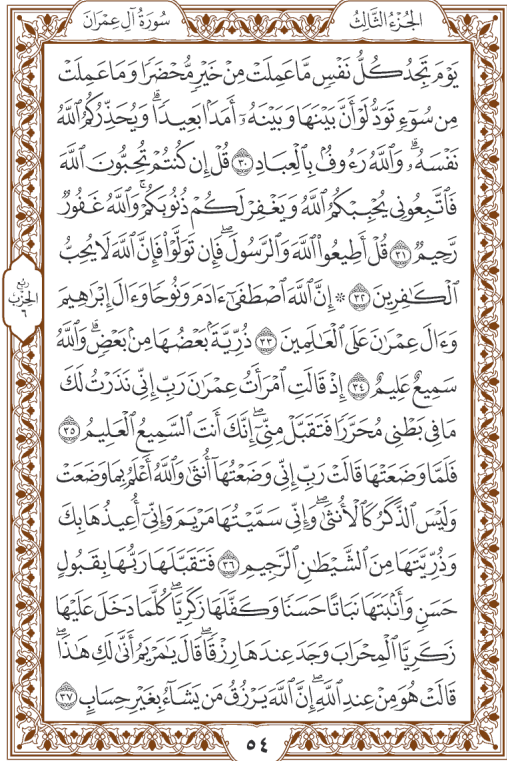 الجُزْءُ الثَّالِثُ
سُورَةُ آلِ عِمْرَانَ
يَوْمَ تَجِدُ كُلُّ نَفْسٍ مَّا عَمِلَتْ مِنْ خَيْرٍ مُّحْضَرًا وَمَا عَمِلَتْ
مِن سُوٓءٍ تَوَدُّ لَوْ أَنَّ بَيْنَهَا وَبَيْنَهُۥٓ أَمَدَۢا بَعِيدًاۗ وَيُحَذِّرُكُمُ ٱللَّهُ
نَفْسَهُۥۗ وَٱللَّهُ رَءُوفُۢ بِٱلْعِبَادِ ٣٠ قُلْ إِن كُنتُمْ تُحِبُّونَ ٱللَّهَ
فَٱتَّبِعُونِى يُحْبِبْكُمُ ٱللَّهُ وَيَغْفِرْ لَكُمْ ذُنُوبَكُمْۚ وَٱللَّهُ غَفُورٌ
رَّحِيمٌ ٣١ قُلْ أَطِيعُوا۟ ٱللَّهَ وَٱلرَّسُولَۖ فَإِن تَوَلَّوْا۟ فَإِنَّ ٱللَّهَ لَا يُحِبُّ
ٱلْكَٰفِرِينَ ٣٢ ۞ إِنَّ ٱللَّهَ ٱصْطَفَىٰٓ ءَادَمَ وَنُوحًا وَءَالَ إِبْرَٰهِيمَ
وَءَالَ عِمْرَٰنَ عَلَى ٱلْعَٰلَمِينَ ٣٣ ذُرِّيَّةَۢ بَعْضُهَا مِنۢ بَعْضٍۗ وَٱللَّهُ
سَمِيعٌ عَلِيمٌ ٣٤ إِذْ قَالَتِ ٱمْرَأَتُ عِمْرَٰنَ رَبِّ إِنِّى نَذَرْتُ لَكَ
مَا فِى بَطْنِى مُحَرَّرًا فَتَقَبَّلْ مِنِّىٓۖ إِنَّكَ أَنتَ ٱلسَّمِيعُ ٱلْعَلِيمُ ٣٥
فَلَمَّا وَضَعَتْهَا قَالَتْ رَبِّ إِنِّى وَضَعْتُهَآ أُنثَىٰ وَٱللَّهُ أَعْلَمُ بِمَا وَضَعَتْ
وَلَيْسَ ٱلذَّكَرُ كَٱلْأُنثَىٰۖ وَإِنِّى سَمَّيْتُهَا مَرْيَمَ وَإِنِّىٓ أُعِيذُهَا بِكَ
وَذُرِّيَّتَهَا مِنَ ٱلشَّيْطَٰنِ ٱلرَّجِيمِ ٣٦ فَتَقَبَّلَهَا رَبُّهَا بِقَبُولٍ
حَسَنٍ وَأَنۢبَتَهَا نَبَاتًا حَسَنًا وَكَفَّلَهَا زَكَرِيَّاۖ كُلَّمَا دَخَلَ عَلَيْهَا
زَكَرِيَّا ٱلْمِحْرَابَ وَجَدَ عِندَهَا رِزْقًاۖ قَالَ يَٰمَرْيَمُ أَنَّىٰ لَكِ هَٰذَاۖ
قَالَتْ هُوَ مِنْ عِندِ ٱللَّهِۖ إِنَّ ٱللَّهَ يَرْزُقُ مَن يَشَآءُ بِغَيْرِ حِسَابٍ ٣٧
رُبع
الحِزْب
٦
٥٤